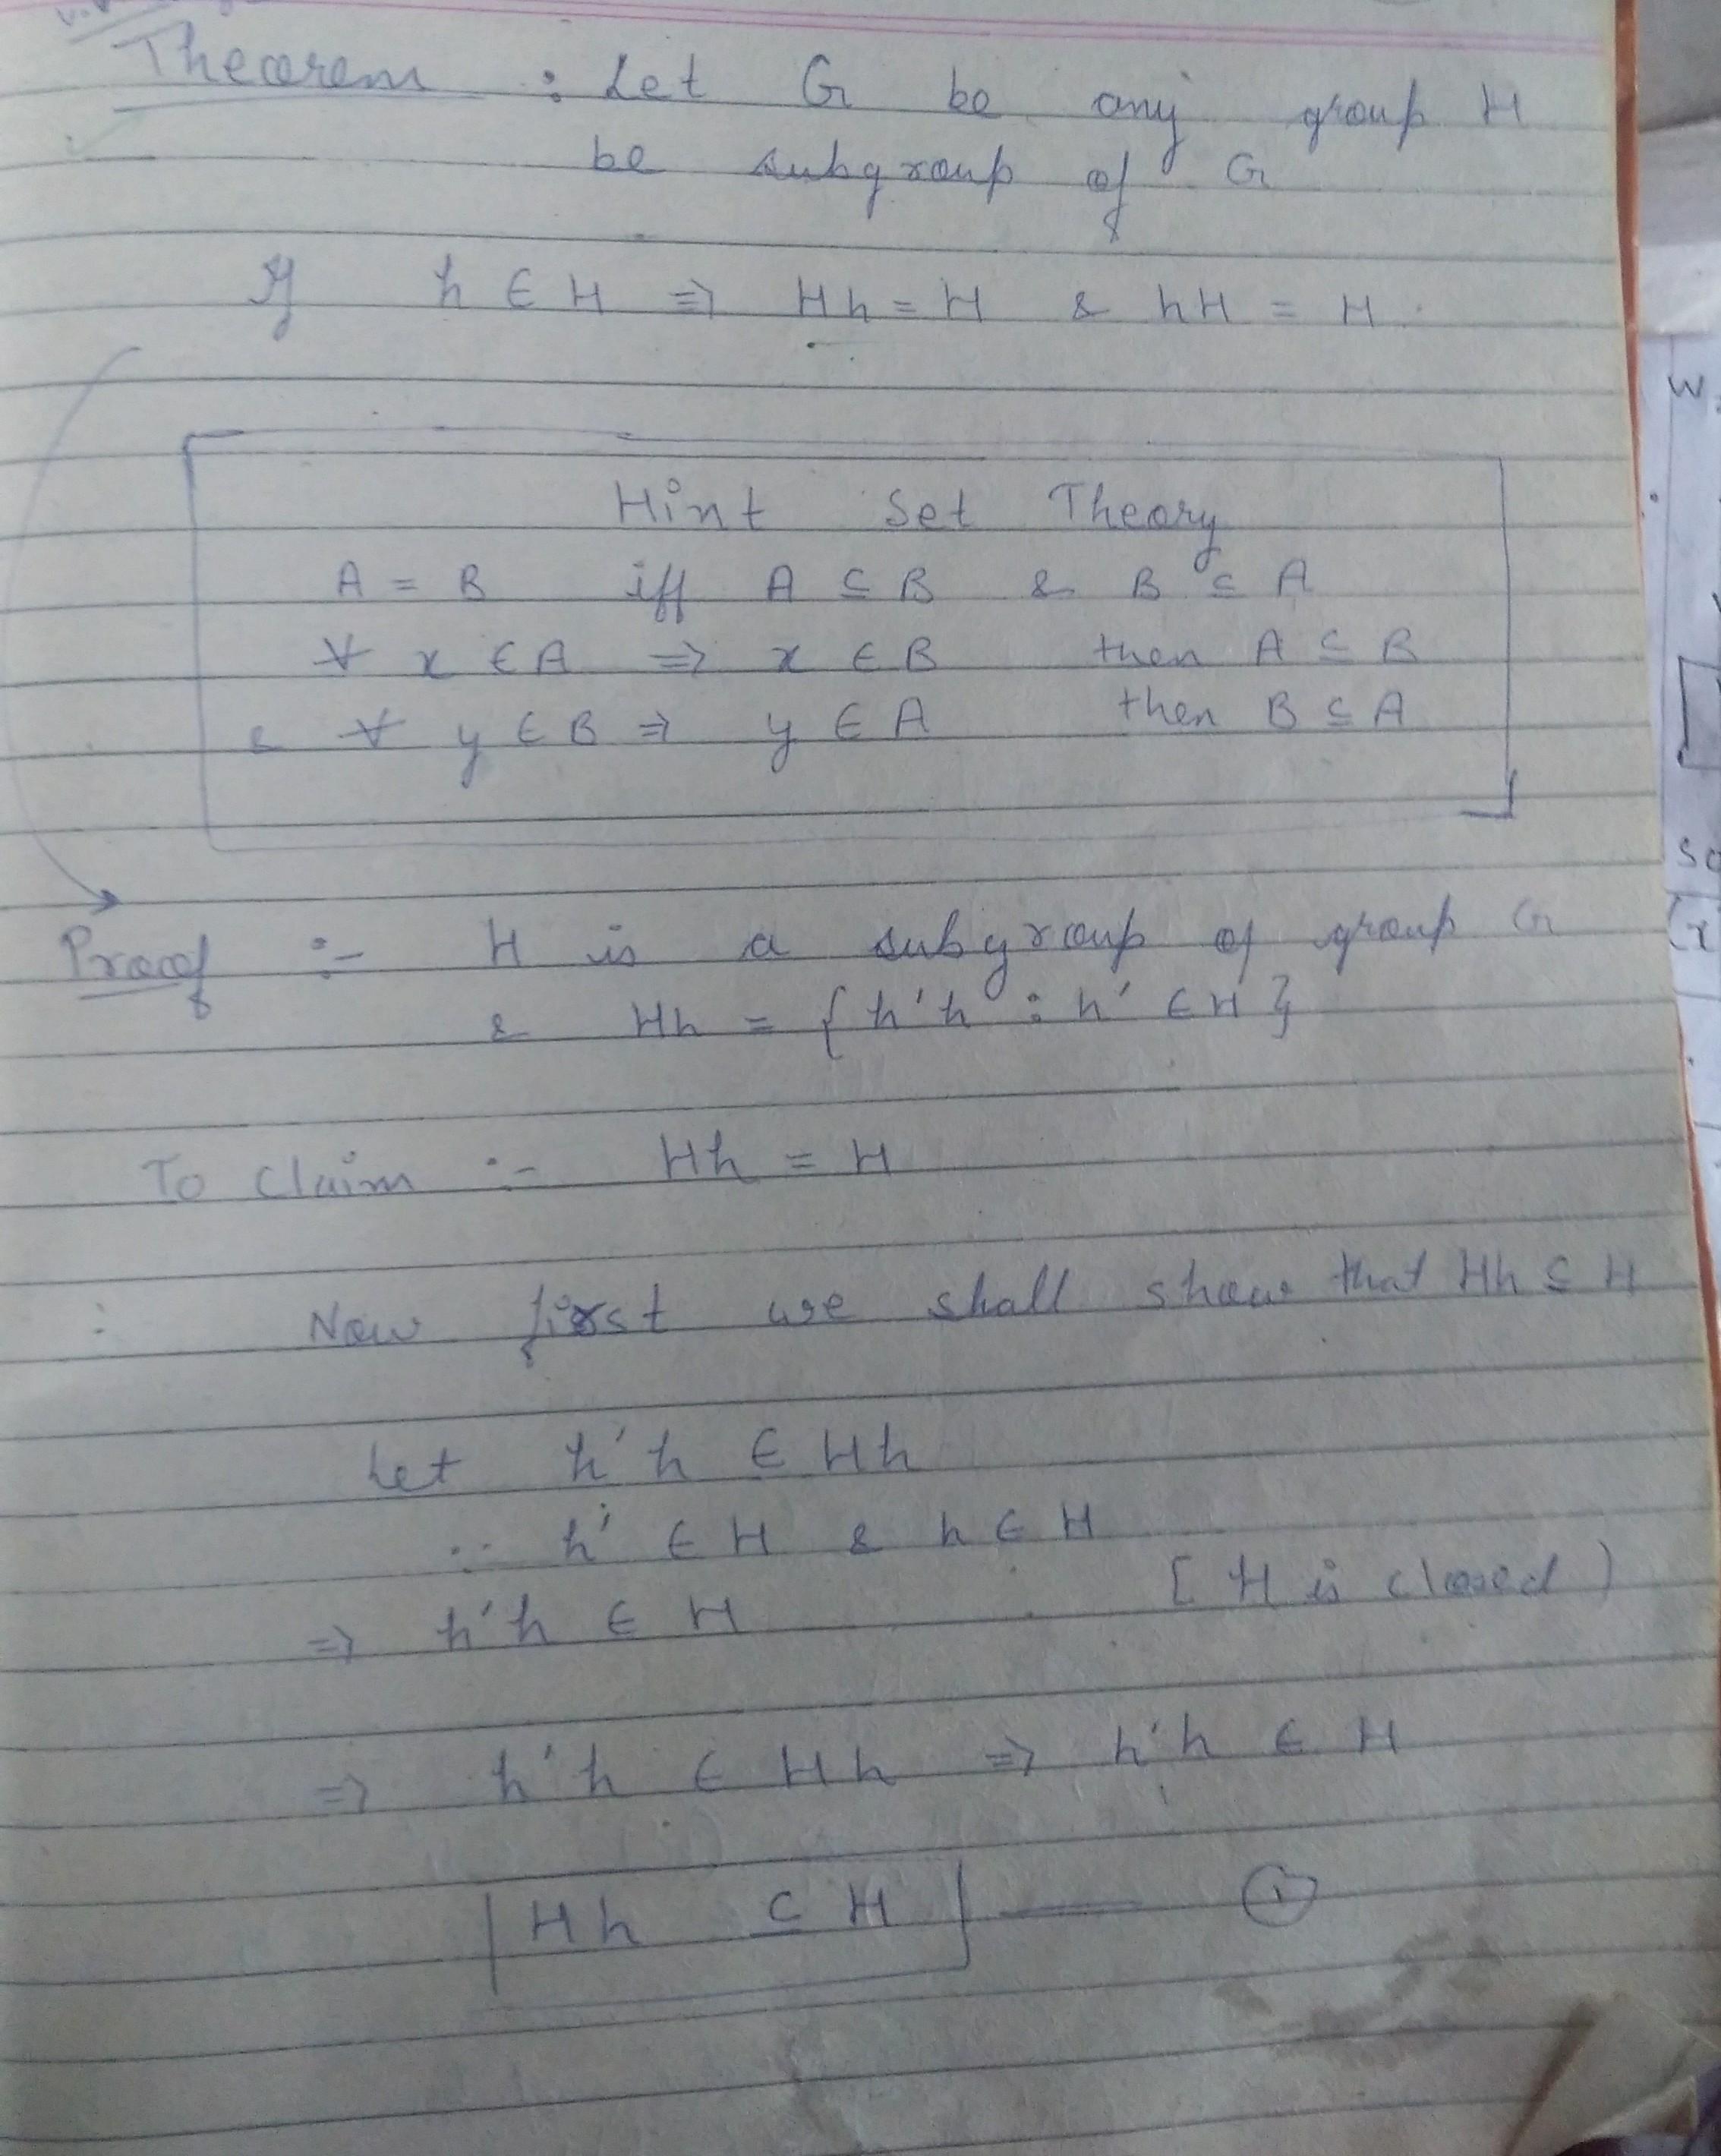 Theorem : Let G be any group H
be subgroup of G
If h ∈ H ⇒ Hh = H & hH = H.
Hint Set Theory
A = B iff A ⊆ B & B ⊆ A
∀ x ∈ A ⇒ x ∈ B then A ⊆ B
& ∀ y ∈ B ⇒ y ∈ A then B ⊆ A
Proof :- H is a subgroup of group G
& Hh = { h'h : h' ∈ H }
To claim :- Hh = H
: Now first we shall show that Hh ⊆ H
Let h'h ∈ Hh
∴ h' ∈ H & h ∈ H
⇒ h'h ∈ H [ H is closed )
⇒ h'h ∈ Hh ⇒ h'h ∈ H
Hh ⊆ H — ①
W